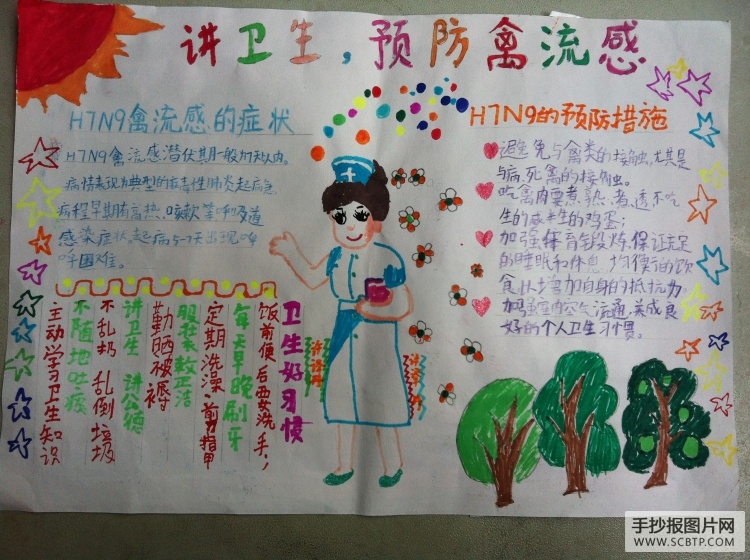 讲卫生，预防禽流感
H7N9禽流感的症状
H7N9禽流感潜伏期一般为7天以内。
病情表现为典型的病毒性肺炎起病急
病程早期有高热、咳嗽等呼吸道
感染症状。起病5-7天出现呼
吸困难。
H7N9的预防措施
避免与禽类的接触，尤其是
与病、死禽的接触。
吃禽肉要煮熟、煮透不吃
生的或半生的鸡蛋；
加强体育锻炼，保证充足
的睡眠和休息，均衡的饮
食以增加自身的抵抗力
加强室内空气流通，养成良
好的个人卫生习惯。
卫生好习惯
饭前便后要洗手，
每天早晚刷牙
定期洗澡，剪指甲
服装衣数正洁
勤晒被褥
讲卫生 讲公德
不乱扔 乱倒垃圾
不随地吐痰
主动学习卫生知识
手抄报图片网
WWW.SCBTP.COM